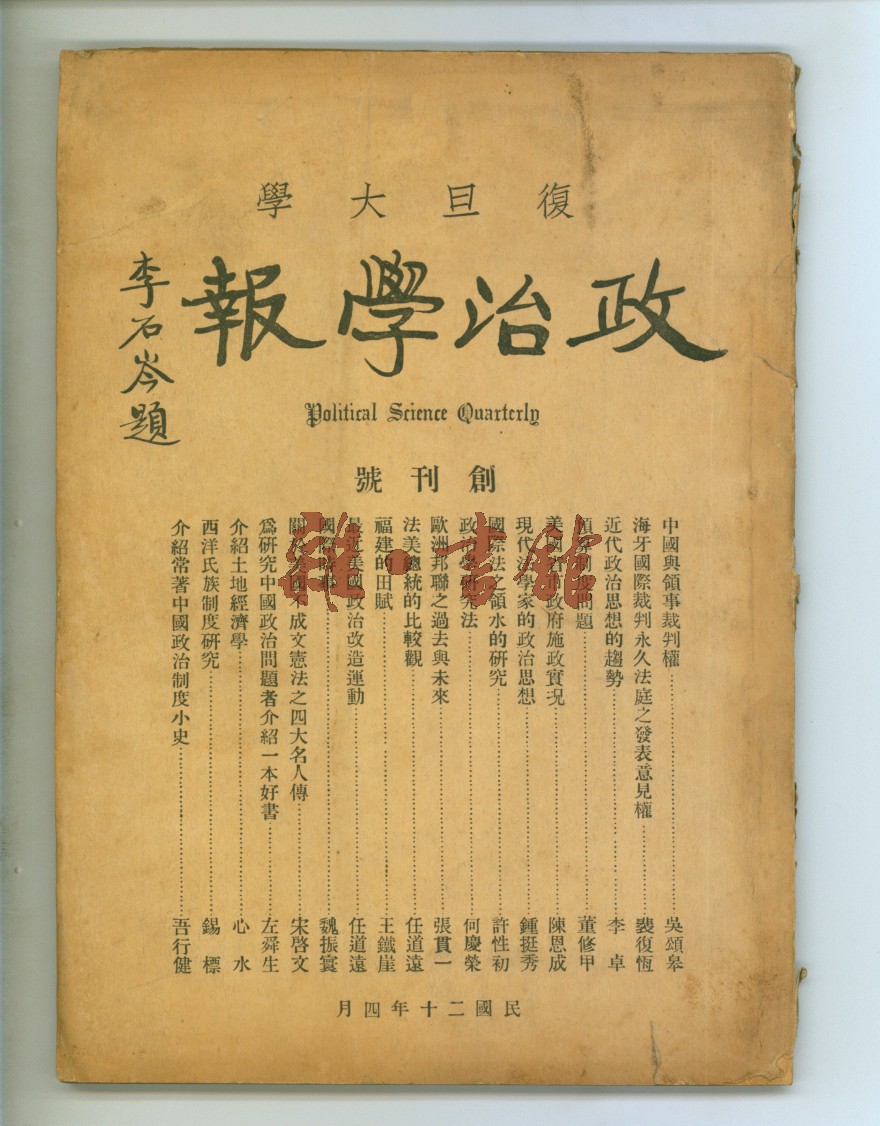 復旦大學
政治學報
李石岑題
Political Science Quarterly
創刊號
中國與領事裁判權……吳頌皋
海牙國際裁判永久法庭之發表意見權……裴復恆
近代政治思想的趨勢……李卓
預算制度問題……董修甲
美國省市政府施政實况……陳恩成
現代法學家的政治思想……鍾挺秀
國際法之領水的研究……許性初
政治學研究法……何慶榮
歐洲邦聯之過去與未來……張貫一
法美總統的比較觀……任道遠
福建的田賦……王鐵崖
最近美國政治改造運動……任道遠
國際時事……魏振寰
關於美國不成文憲法之四大名人傳……宋啓文
爲研究中國政治問題者介紹一本好書……左舜生
介紹土地經濟學……心水
西洋氏族制度研究……錫標
介紹常著中國政治制度小史……吾行健
民國二十年四月
雜·書館